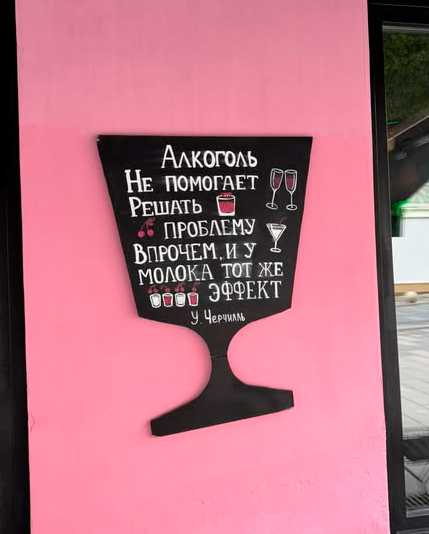 Алкоголь
Не помогает
Решать
проблему
Впрочем, и у
молока тот же
эффект
У. Черчилль